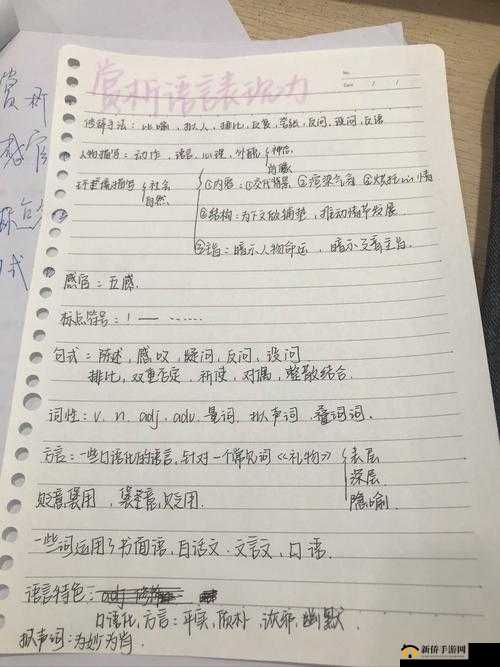 赏析语言表现力
No.
Date
修辞手法：比喻，拟人，排比，反复，夸张，反问，设问，反语
人物描写：动作，语言，心理，外貌 神态
环境描写 社会 自然
①内容：①交代背景 ②渲染气氛 ③烘托心情
②结构：为下文做铺垫，推动情节发展
③主旨：暗示人物命运，暗示文章主旨
感官：五感.
标点符号：！——　……
句式：陈述，感叹，疑问，反问，设问
排比，双重否定，祈使，对偶，整散结合.
词性：v. n. adj. adv. 量词，拟声词，叠词词.
方言：一些口语化的语言，针对一个常见词《礼物》 表层
深层
隐喻
贬义褒用，褒义贬用.
一些词运用了书面语，白话文.文言文，口语.
语言特色：
口语化，方言：平实，质朴，诙谐，幽默
拟声词：为妙为肖
赏析
感官
标点
句式
新侨手游网